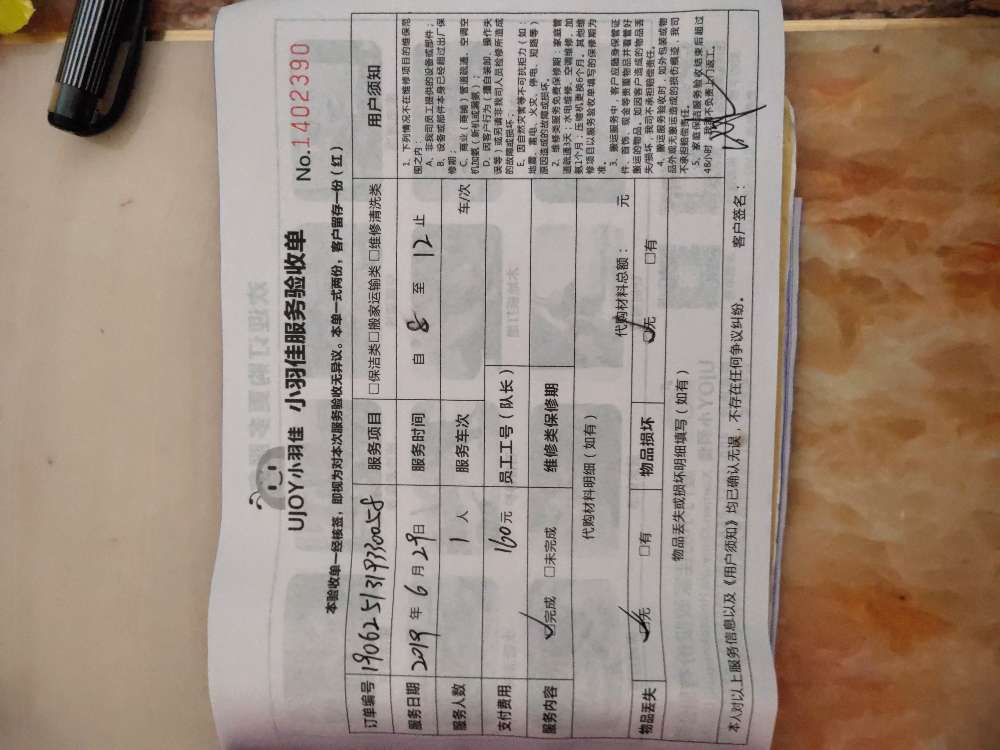 No.1402390
UJOY小羽佳 小羽佳服务验收单
本验收单一经核签，即视为对本次服务验收无异议。本单一式两份，客户留存一份（红）
订单编号 1906251319330058 服务项目 □保洁类□搬家运输类 □维修清洗类
服务日期 2019 年 6 月 29 日 服务时间 自 8 至 12 止
服务人数 1 人 服务车次 车/次
支付费用 160 元 员工工号（队长）
服务内容 □完成 □未完成 维修类保修期
代购材料明细（如有）
代购材料总额： 元
物品丢失 □无 □有 物品损坏 □无 □有
物品丢失或损坏明细填写（如有）
用户须知
1. 下列情况不在维修项目的维保范
围之内：
A、非我司员工提供的设备或部件；
B、设备或部件本身已经超过出厂保
修期；
C、商业（商铺）管道疏通、空调空
机加氨（新机或漏氨）；
D、因客户行为（擅自装卸、操作失
误等）或另请非我司人员检修所造成
的故障或损坏；
E、因自然灾害等不可抗拒力（如：
地震、雷电、火灾、停电、短路等）
原因造成的故障或损坏。
2、维修类服务免费保修期：家庭管
道疏通3天；水电维修、空调维修、加
氨1个月；压缩机更换6个月；其他维
修项目以服务验收单填写的保修期为
准。
3、搬运服务中，客户应随身保管证
件、首饰、现金等贵重物品并看管好
搬运的物品，如因客户造成的物品丢
失/损坏，我司不承担赔偿责任。
4、搬运服务验收时，如外包装或物
品外观无搬运造成的损伤痕迹，我司
不承担赔偿责任。
5、家庭保洁服务验收结束后超过
48小时，我司不负责上门返工。
本人对以上服务信息以及《用户须知》均已确认无误，不存在任何争议纠纷。 客户签名：